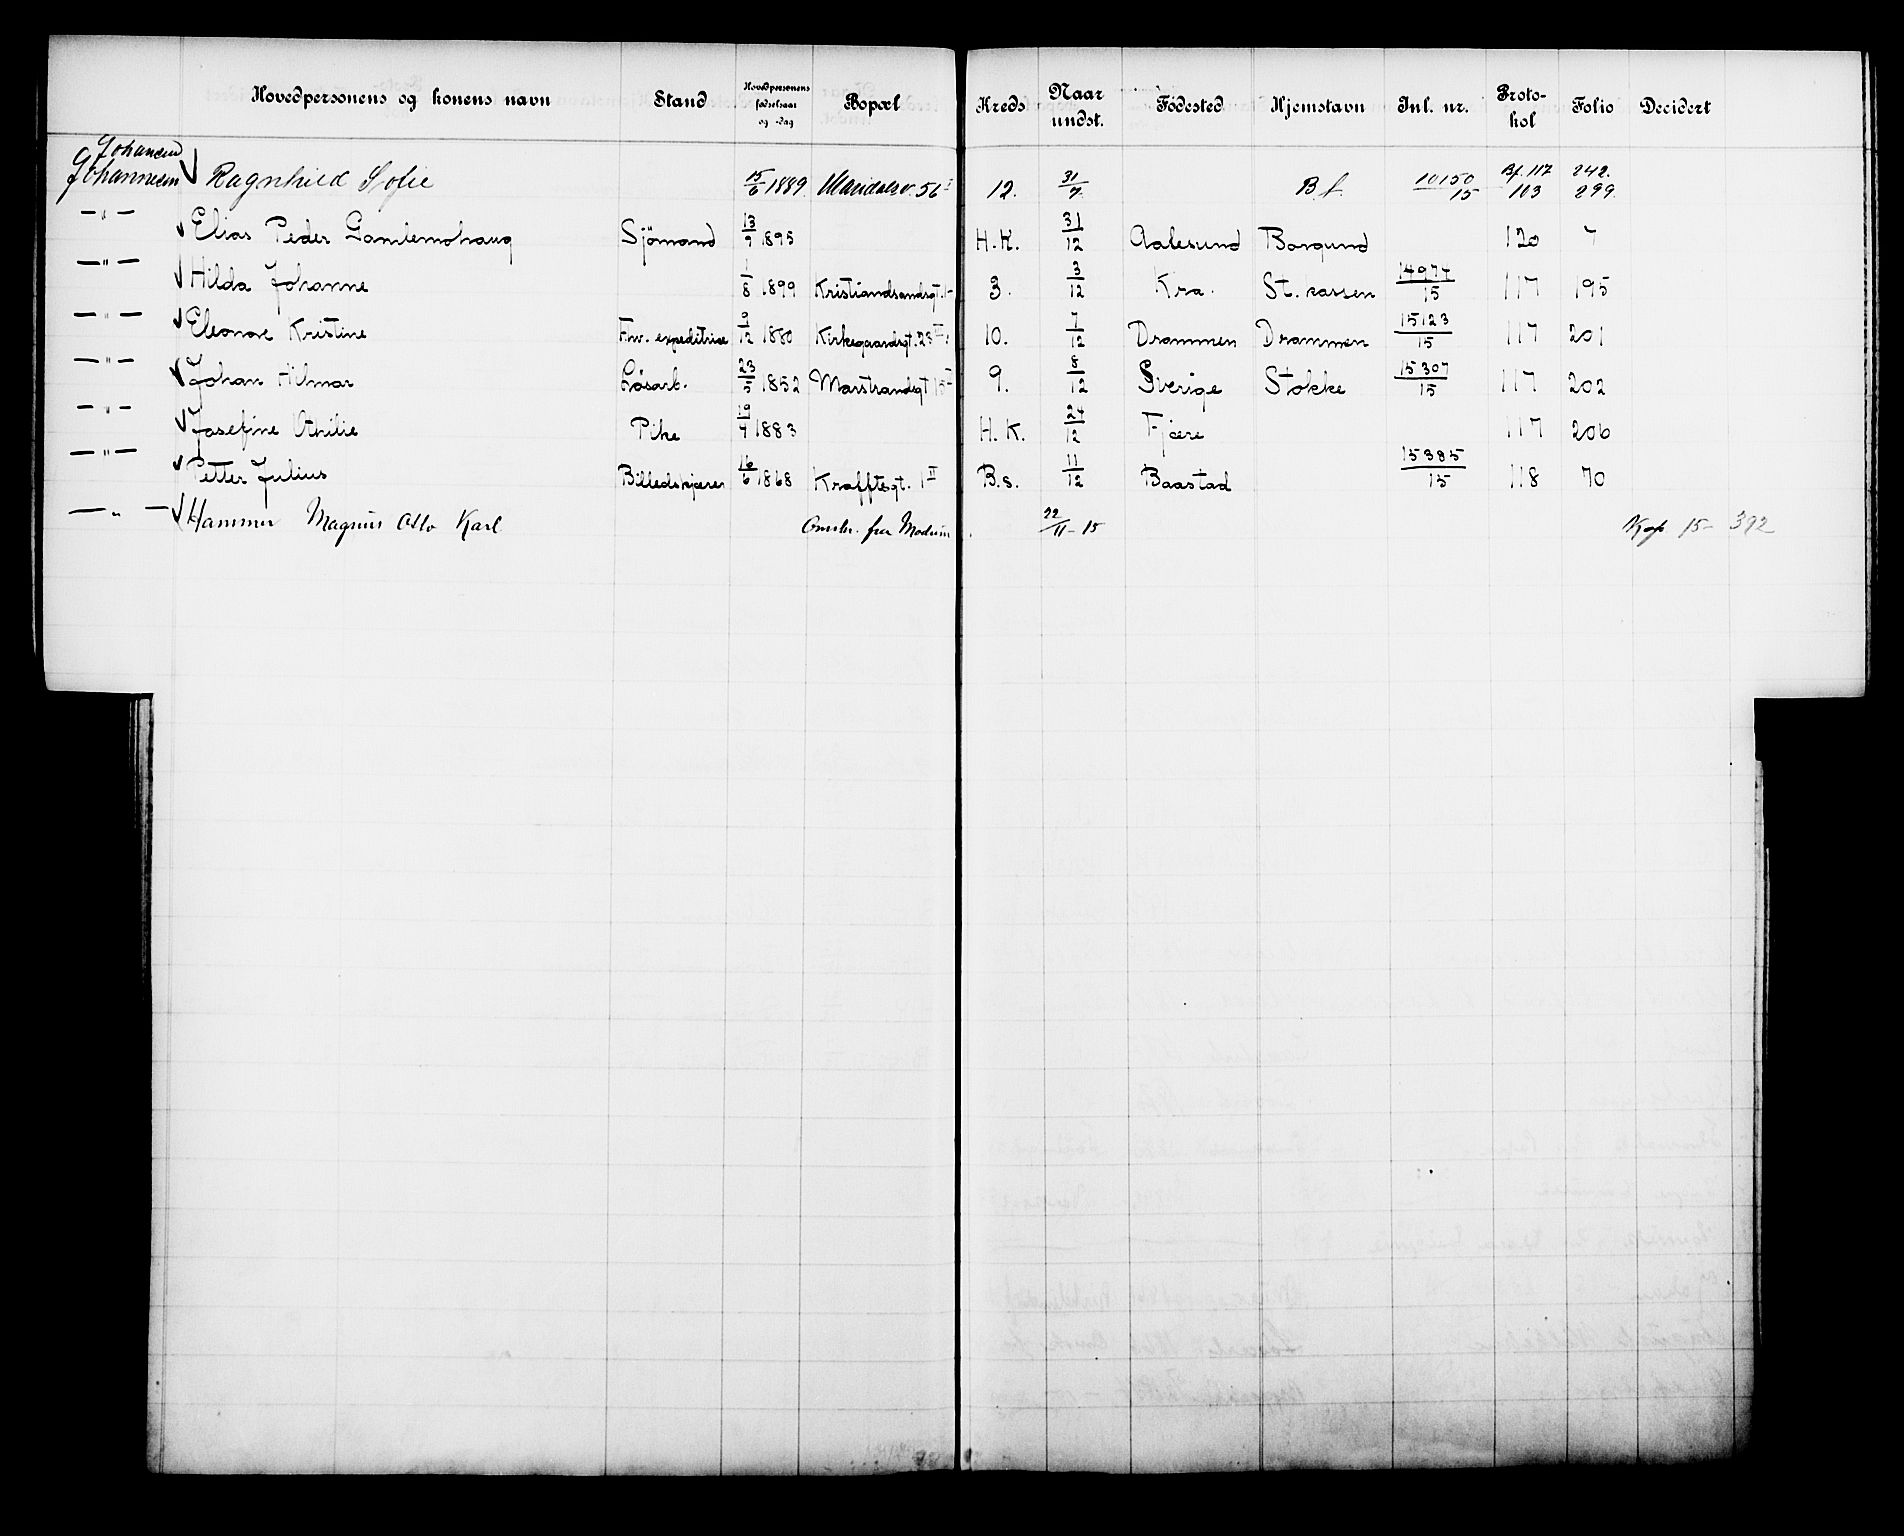 Hovedpersonens og konens navn Stand Hovedpersonens fødselsaar og -dag Bopæl Kreds Naar undst. Födested Hjemstavn Inl. nr. Protokol Folio Decidert
Johansen
Johannesen Ragnhild Sofie 15/6 1889 Maridalsv. 56 I 12. 31/7 B.f. 10150/15 Bf. 117 242.
103 299.
—"— Elias Peder Gamlemshaug Sjömand 13/9 1895 H.K. 31/12 Aalesund Borgund 120 7
—"— Hilda Johanne 1/8 1899 Kristiandsandsgt. 1 3. 3/12 Kra. St. kassen 14974/15 117 195
—"— Eleonore Kristine Frv. expeditrise 9/12 1880 Kirkegaardsgt. 28 II 10. 7/12 Drammen Drammen 15123/15 117 201
—"— Johan Hilmar Lösarb. 23/5 1852 Marstrandsgt 15 I 9. 8/12 Sverige Stokke 15307/15 117 202
—"— Josefine Othilie Pike 19/7 1883 H.K. 24/12 Fjære 117 206
—"— Petter Julius Billedskjærer 16/6 1868 Krafftsgt. 1 II B.s. 11/12 Baastad 15385/15 118 70
—"— Hammer Magnus Otto Karl Omskr. fra Modum 22/11-15 Kop. 15- 392